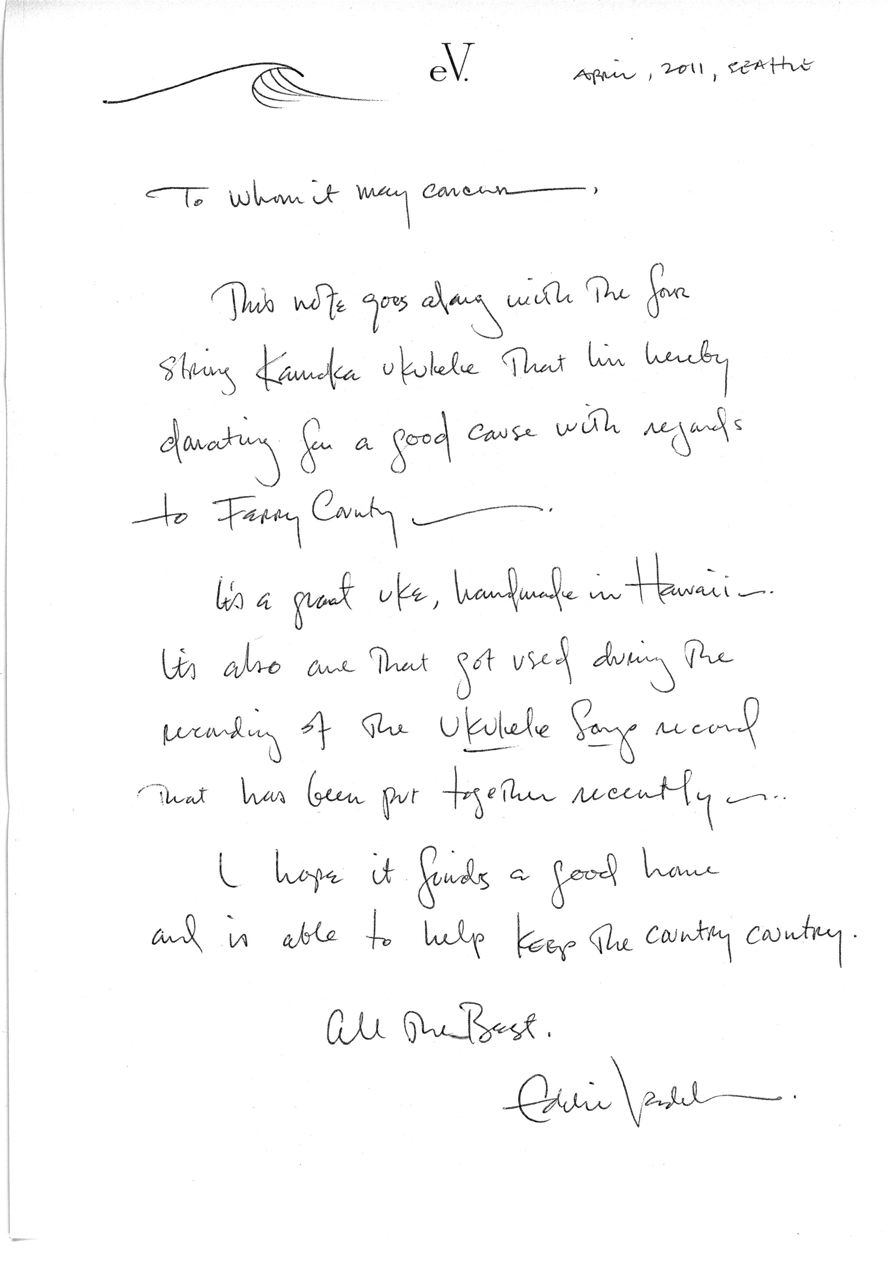 eV.
APRIL, 2011, SEATTLE
To whom it may concern——,
This note goes along with the four
string Kamaka ukulele that I'm hereby
donating for a good cause with regards
to Ferry County ——.
It's a great uke, handmade in Hawaii —.
It's also one that got used during the
recording of the Ukulele Songs record
that has been put together recently —..
I hope it finds a good home
and is able to help keep the country country.
All the Best.
Eddie Vedder.